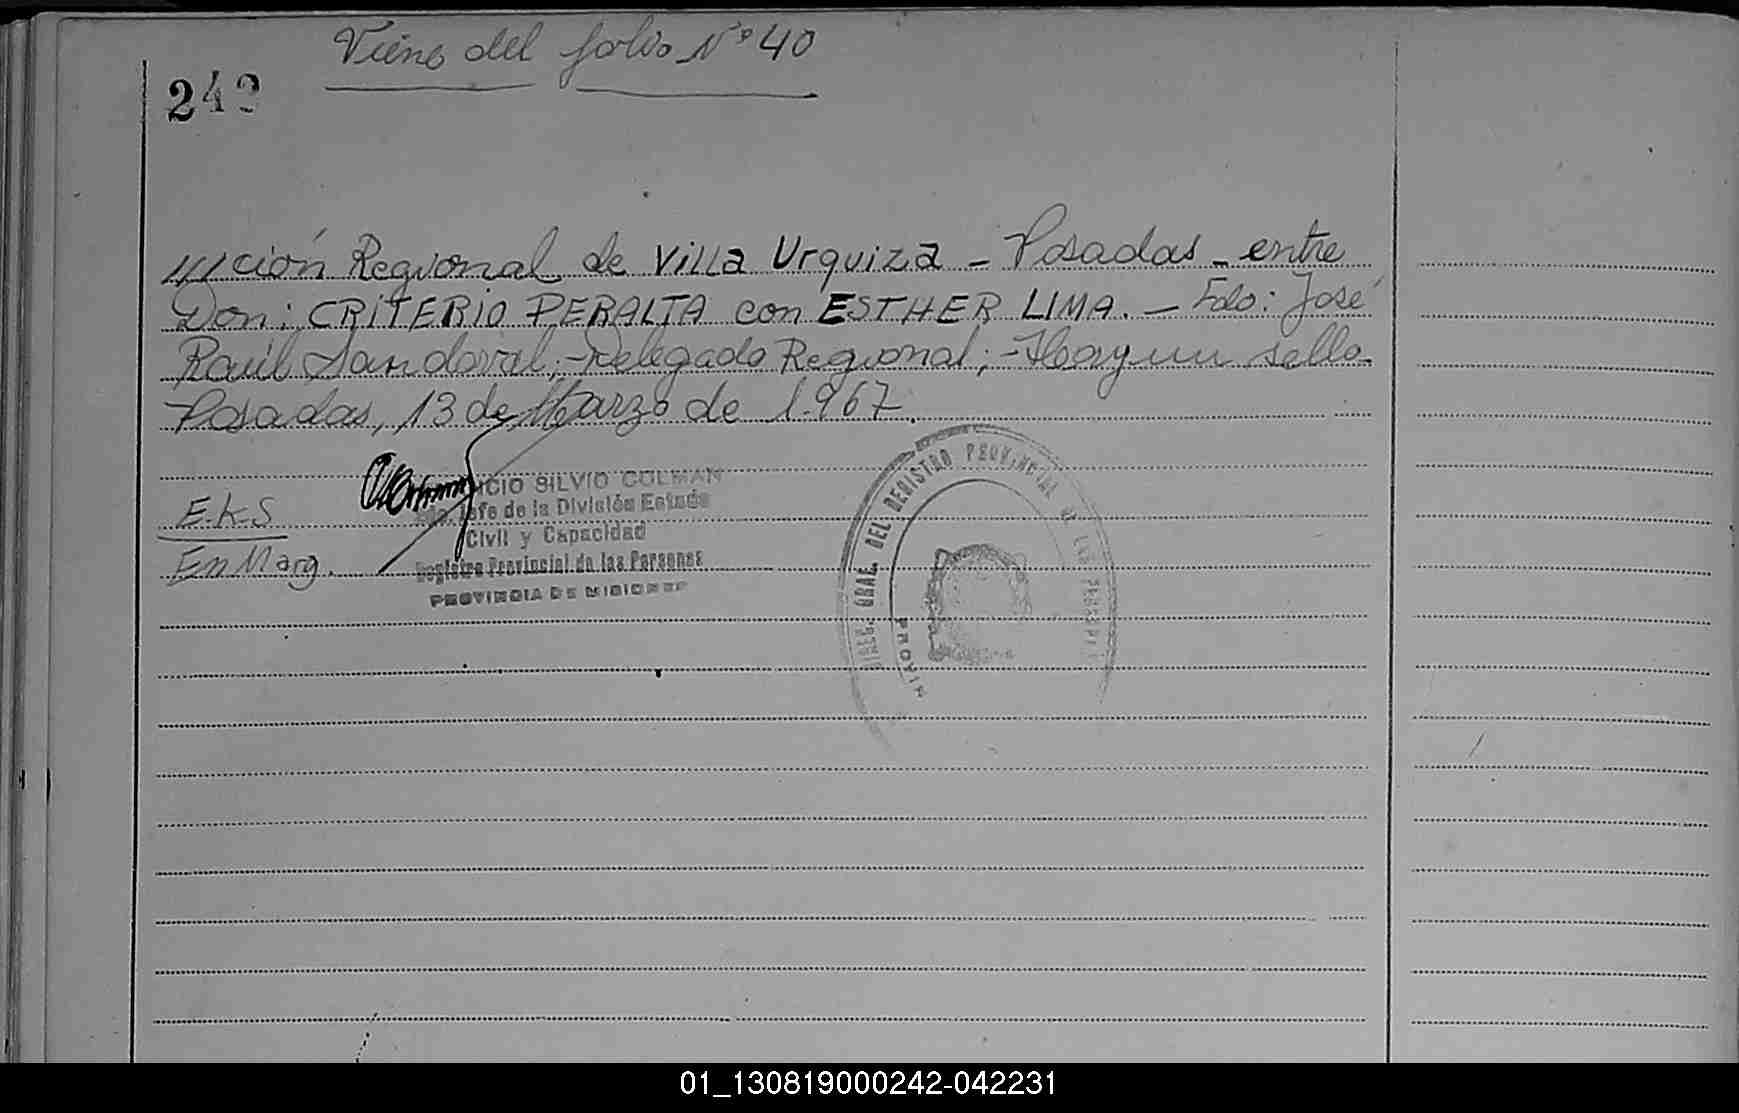 Viene del folio Nº 40
242
///ción Regional de Villa Urquiza - Posadas - entre
Don: CRITERIO PERALTA con ESTHER LIMA. - Fdo: José
Raúl Sandoval; - Delegado Regional; - Hay un sello.
Posadas, 13 de Marzo de 1.967.
ICIO SILVIO COLMAN
Jefe de la División Estado
E.K.S
Civil y Capacidad
En Marg.
Registro Provincial de las Personas
PROVINCIA DE MISIONES
DIREC. GRAL. DEL REGISTRO PROVINCIAL DE LAS PERSONAS
PROVIN
01_130819000242-042231